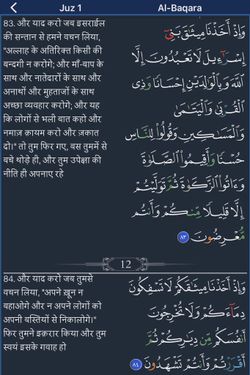 Juz 1
Al-Baqara
83. और याद करो जब इसराईल
की सन्तान से हमने वचन लिया,
"अल्लाह के अतिरिक्त किसी की
बन्दगी न करोगे; और माँ-बाप के
साथ और नातेदारों के साथ और
अनाथों और मुहताजों के साथ
अच्छा व्यवहार करोगे; और यह
कि लोगों से भली बात कहो और
नमाज़ क़ायम करो और ज़कात
दो।" तो तुम फिर गए, बस तुममें से
बचे थोड़े ही, और तुम उपेक्षा की
नीति ही अपनाए रहे
وَإِذْ أَخَذْنَا مِيثَٰقَ بَنِىٓ
إِسْرَٰٓءِيلَ لَا تَعْبُدُونَ إِلَّا
ٱللَّهَ وَبِٱلْوَٰلِدَيْنِ إِحْسَانًا وَذِى
ٱلْقُرْبَىٰ وَٱلْيَتَٰمَىٰ
وَٱلْمَسَٰكِينِ وَقُولُوا۟ لِلنَّاسِ
حُسْنًا وَأَقِيمُوا۟ ٱلصَّلَوٰةَ
وَءَاتُوا۟ ٱلزَّكَوٰةَ ثُمَّ تَوَلَّيْتُمْ
إِلَّا قَلِيلًا مِّنكُمْ وَأَنتُم
مُّعْرِضُونَ ٨٣
12
84. और याद करो जब तुमसे
वचन लिया, "अपने ख़ून न
बहाओगे और न अपने लोगों को
अपनी बस्तियों से निकालोगे।"
फिर तुमने इक़रार किया और तुम
स्वयं इसके गवाह हो
وَإِذْ أَخَذْنَا مِيثَٰقَكُمْ لَا تَسْفِكُونَ
دِمَآءَكُمْ وَلَا تُخْرِجُونَ
أَنفُسَكُم مِّن دِيَٰرِكُمْ ثُمَّ
أَقْرَرْتُمْ وَأَنتُمْ تَشْهَدُونَ ٨٤